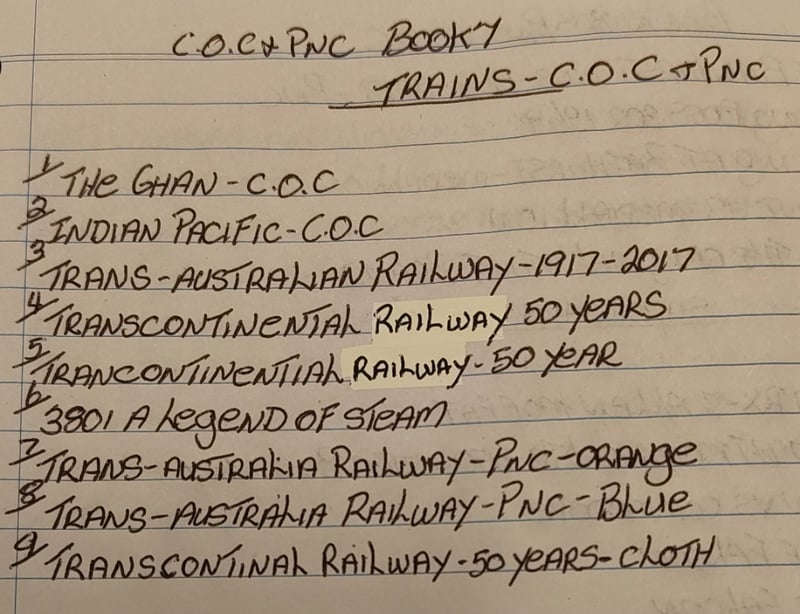 C.O.C & PNC BOOK 7
TRAINS - C.O.C & PNC
1/ THE GHAN - C.O.C
2/ INDIAN PACIFIC - C.O.C
3/ TRANS-AUSTRALIAN RAILWAY - 1917-2017
4/ TRANSCONTINENTAL RAILWAY 50 YEARS
5/ TRANCONTINENTIAL RAILWAY - 50 YEAR
6/ 3801 A LEGEND OF STEAM
7/ TRANS-AUSTRALIA RAILWAY - PNC - ORANGE
8/ TRANS-AUSTRALIA RAILWAY - PNC - BLUE
9/ TRANSCONTINAL RAILWAY - 50 YEARS - CLOTH